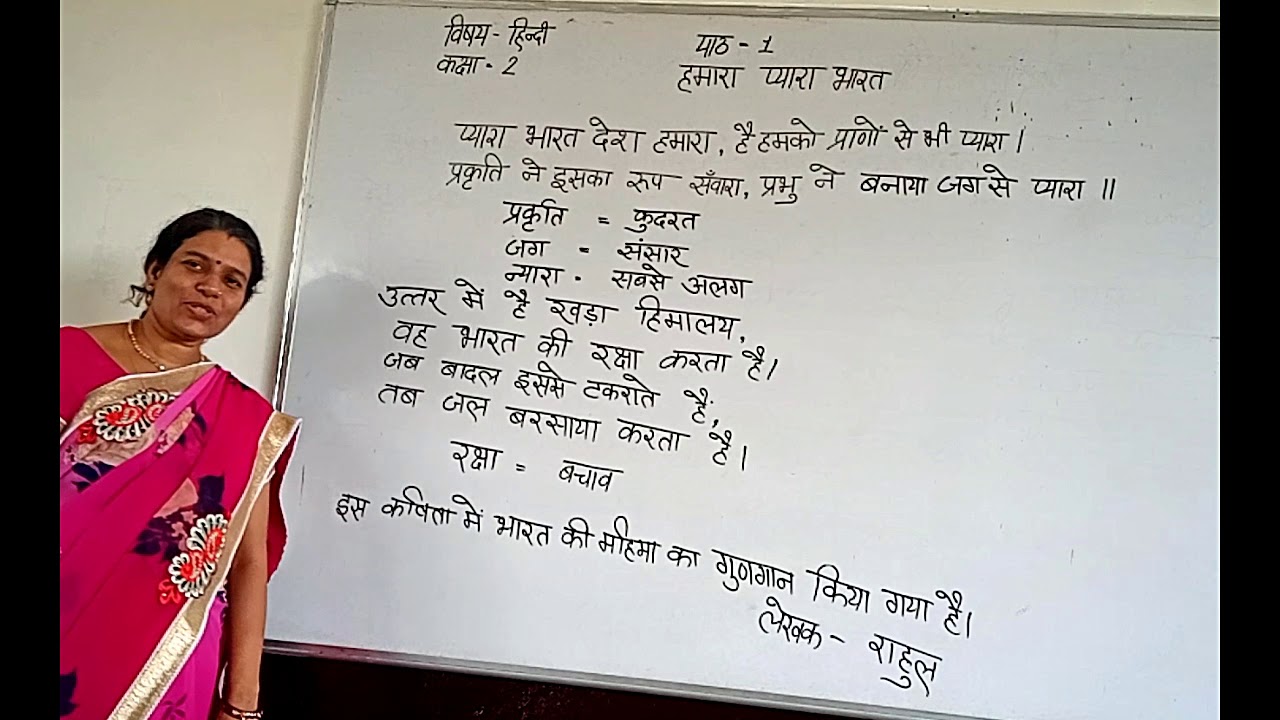 विषय - हिन्दी
कक्षा - 2
पाठ - 1
हमारा प्यारा भारत
प्यारा भारत देश हमारा, है हमको प्राणों से भी प्यारा ।
प्रकृति ने इसका रूप सँवारा, प्रभु ने बनाया जग से प्यारा ॥
प्रकृति = कुदरत
जग = संसार
न्यारा - सबसे अलग
उत्तर में है खड़ा हिमालय,
वह भारत की रक्षा करता है।
जब बादल इससे टकराते हैं,
तब जल बरसाया करता है।
रक्षा = बचाव
इस कविता में भारत की महिमा का गुणगान किया गया है।
लेखक - राहुल